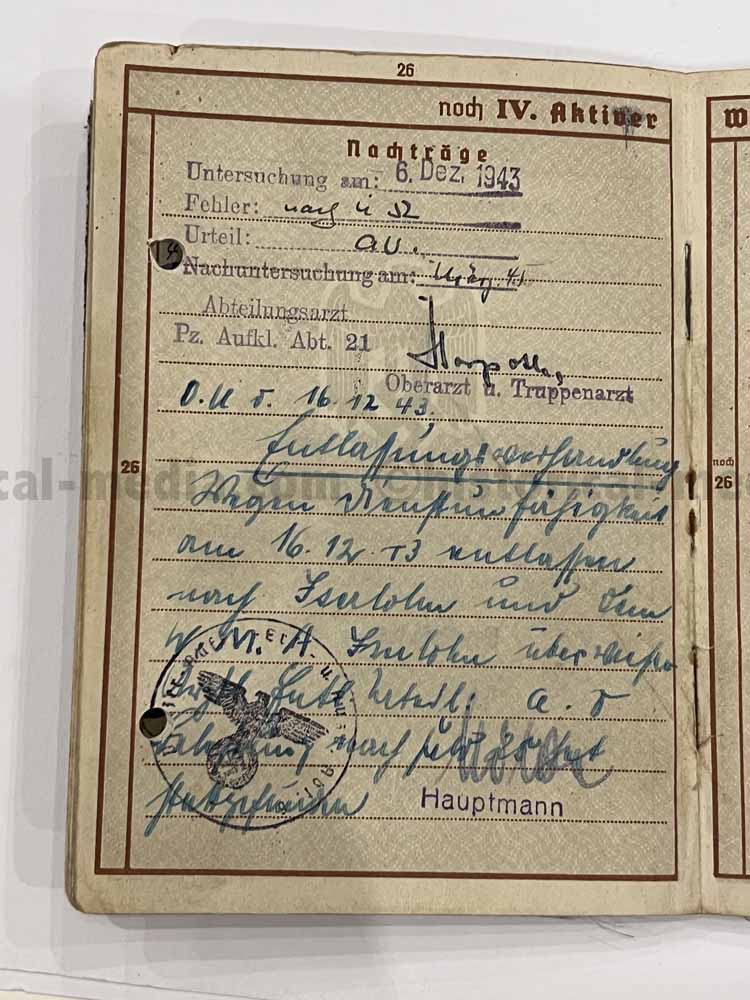 26
noch IV. Aktiver
W
Nachträge
Untersuchung am: 6. Dez. 1943
Fehler: nach U 52
Urteil: av.
Nachuntersuchung am:
Abteilungsarzt
Pz. Aufkl. Abt. 21
Oberarzt u. Truppenarzt
O.U. d. 16.12.43.
Entlassungsverhandlung
26
noch
26
Wegen Dienstunfähigkeit
am 16.12.43 entlassen
nach Iserlohn und dem
W.M.A. Iserlohn überwiesen
Urteil: a. v
nach
hat
stattgefunden
Hauptmann